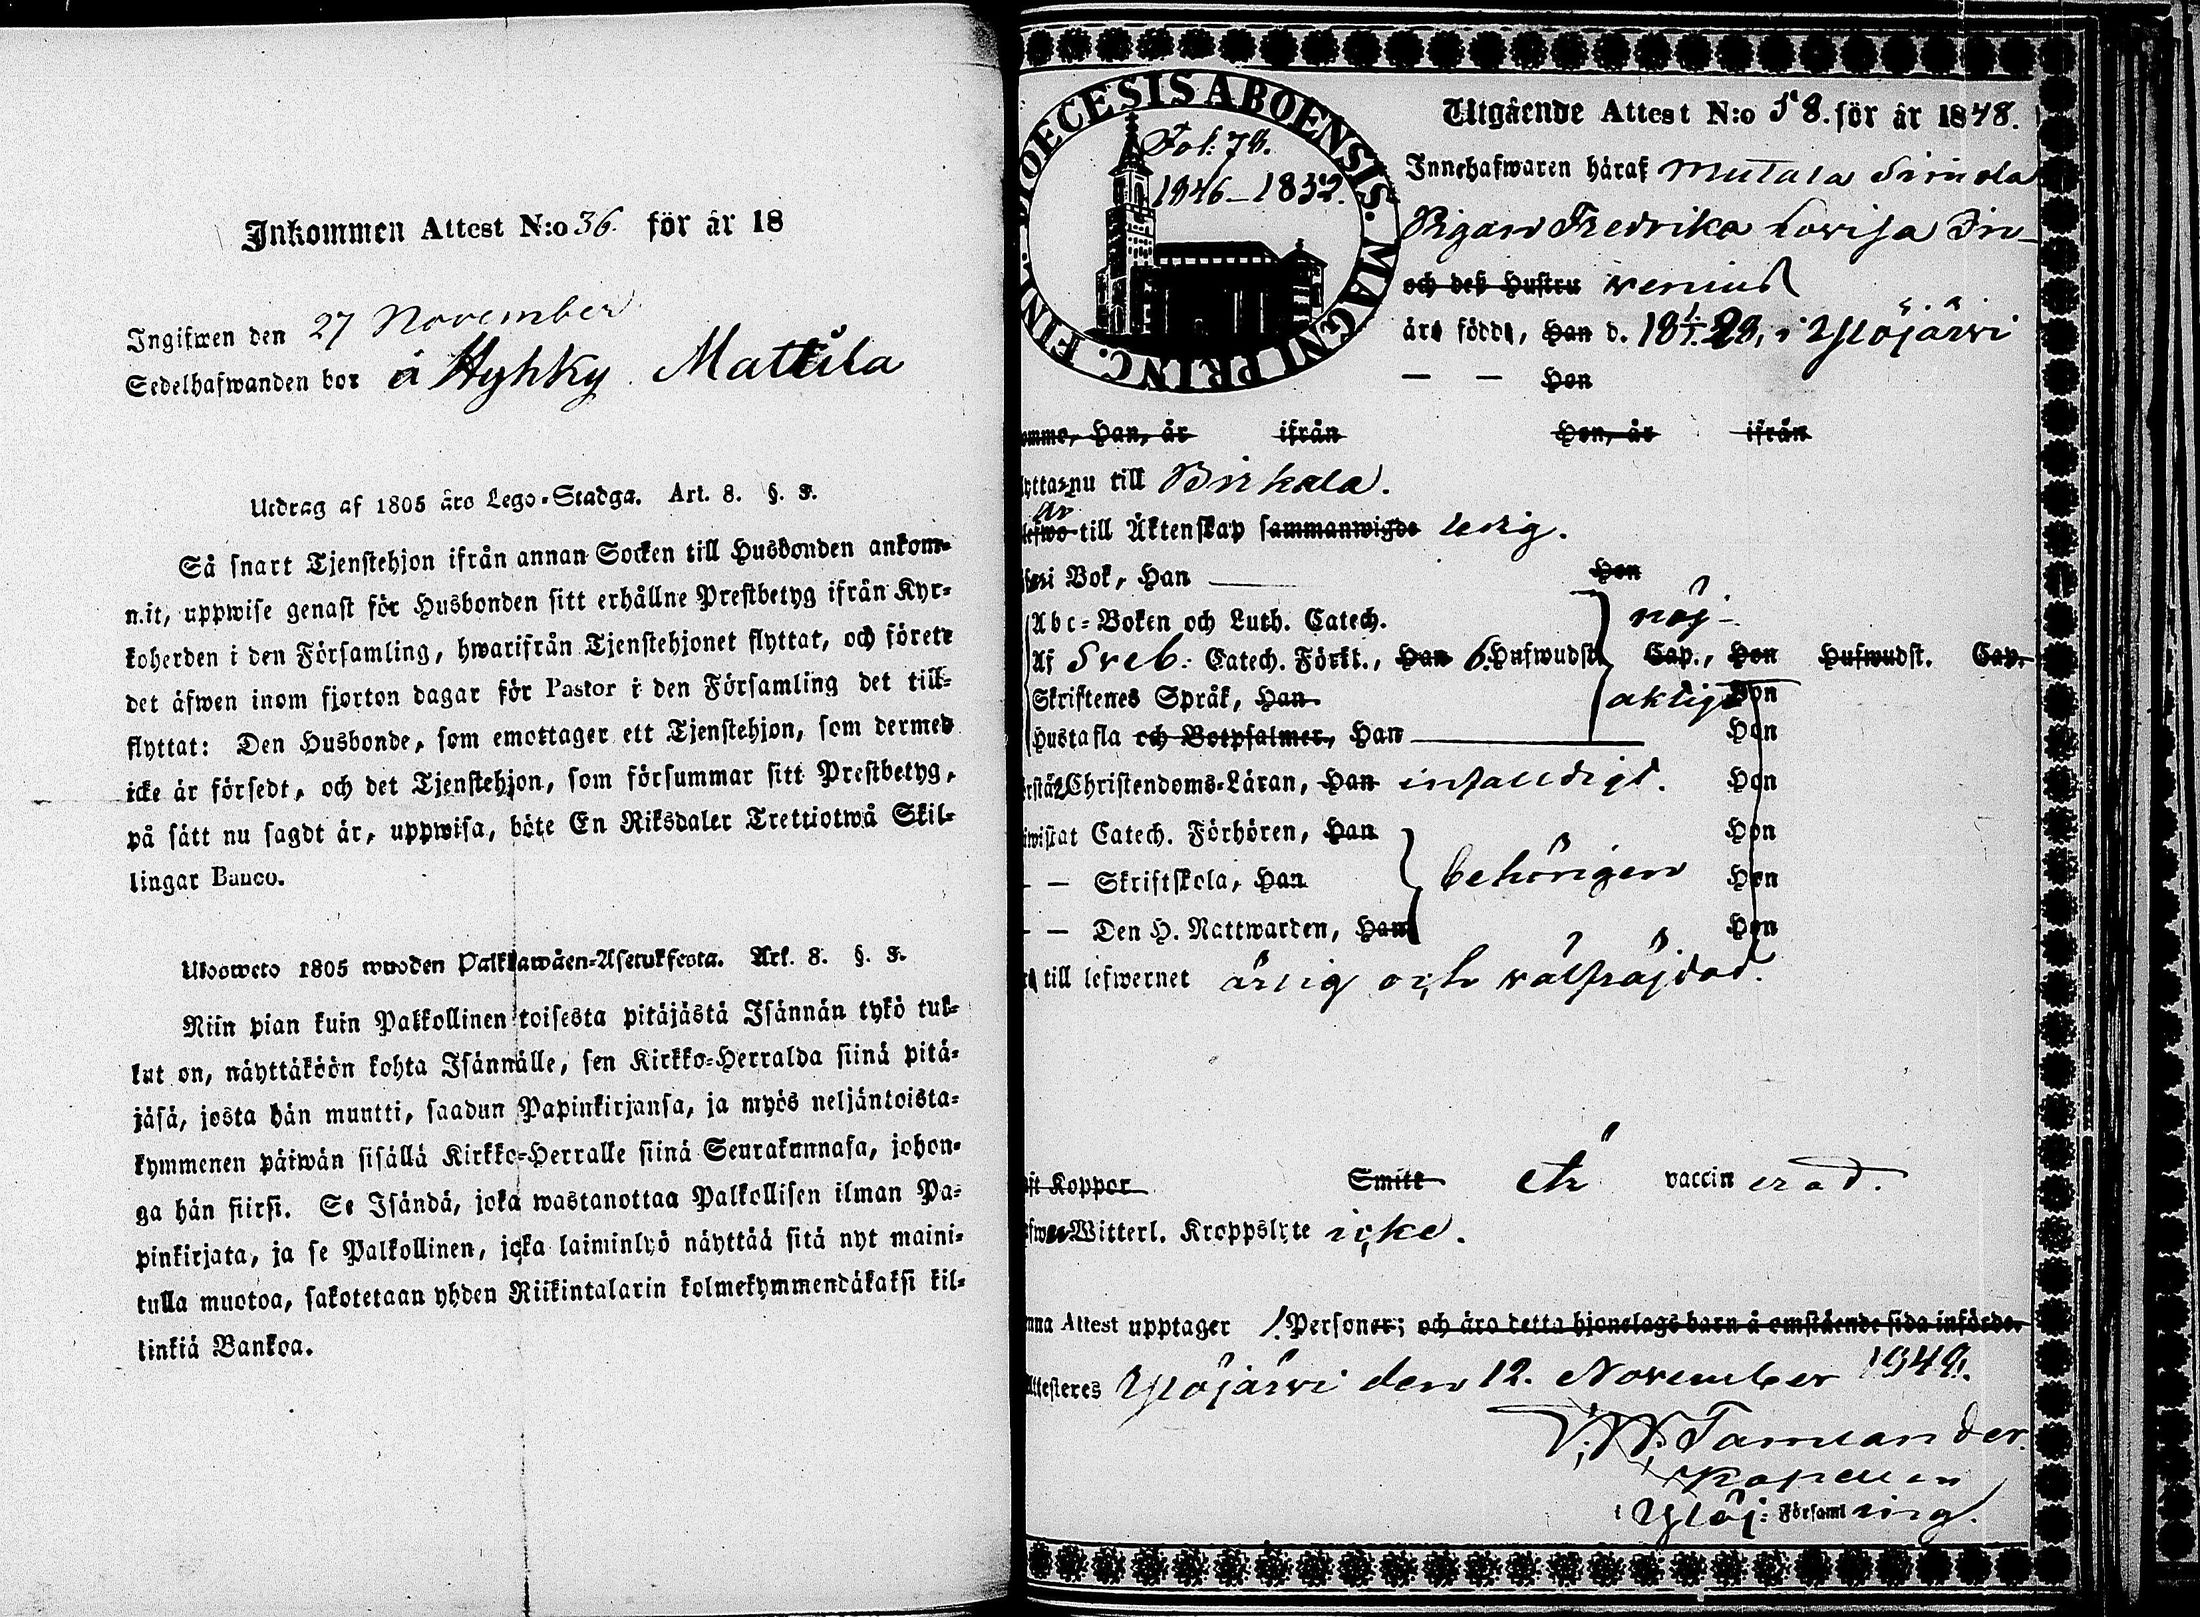 Inkommen Attest N:o 36. för år 18
Ingifwen den 27 November
Sedelhafwanden bor å Hyhky Mattila
Utdrag af 1805 års Lego-Stadga. Art. 8. §. 3.
Så snart Tjenstehjon ifrån annan Socken till Husbonden ankom-
mit, uppwise genast för Husbonden sitt erhållne Prestbetyg ifrån Kyr-
koherden i den Församling, hwarifrån Tjenstehjonet flyttat, och förete
det äfwen inom fjorton dagar för Pastor i den Församling det till-
flyttat: Den Husbonde, som emottager ett Tjenstehjon, som dermed
icke är försedt, och det Tjenstehjon, som försummar sitt Prestbetyg,
på sätt nu sagdt är, uppwisa, böte En Riksdaler Trettiotwå Skil-
lingar Banco.
Ulosweto 1805 wuoden Palkkawäen-Asetuksesta. Art. 8. §. 3.
Niin pian kuin Palkollinen toisesta pitäjästä Isännän tykö tul-
lut on, näyttäköön kohta Isännälle, sen Kirkko-Herralda siinä pitä-
jäsä, josta hän muntti, saadun Papinkirjansa, ja myös neljäntoista-
kymmenen päiwän sisällä Kirkko-Herralle siinä Seurakunnasa, johon-
ga hän siirsi. Se Isändä, joka wastanottaa Palkollisen ilman Pa-
pinkirjata, ja se Palkollinen, joka laiminlyö näyttää sitä nyt maini-
tulla muotoa, sakotetaan yhden Riikintalarin kolmekymmendäkaksi kil-
linkiä Bankoa.
DIOECESIS ABOENSIS. MAGNI PRINC. FINL.
Fol: 78.
1846-1852.
Utgående Attest N:o 58. för år 1848.
Innehafwaren häraf Mutala Simola
Pigan Fredrika Lovisa
och deß Hustru
äro födde, Han d. 18 28, i Ylöjärvi
— — Hon
omme, Han, år ifrån Hon, år ifrån
yttas nu till Birkala.
är
lefwo till Äktenskap sammanwigde ledig.
i Bok, Han Hon
Abc-Boken och Luth. Catech. nöj-
Af Sveb: Catech. Förkl., Han 6. Hufwudst. Cap., Hon Hufwudst. Cap.
Skriftenes Språk, Han aktigt Hon
Hustafla och Botpsalmer, Han Hon
rstår Christendoms-Läran, Han enfalldigt. Hon
iwistat Catech. Förhören, Han Hon
— — Skriftskola, Han behörigen Hon
— — Den H. Nattwarden, Han Hon
till lefwernet ärlig och välfräjdad.
ft Koppor Smitt är vaccin erad.
Witterl. Kroppslyte icke.
nna Attest upptager 1. Personer; och äro detta hjonelags barn å omstående sida införde.
Attesteres Ylöjärvi den 12. November 1848.
Tamlander.
Kapellan
i Ylöj: Församl ing.